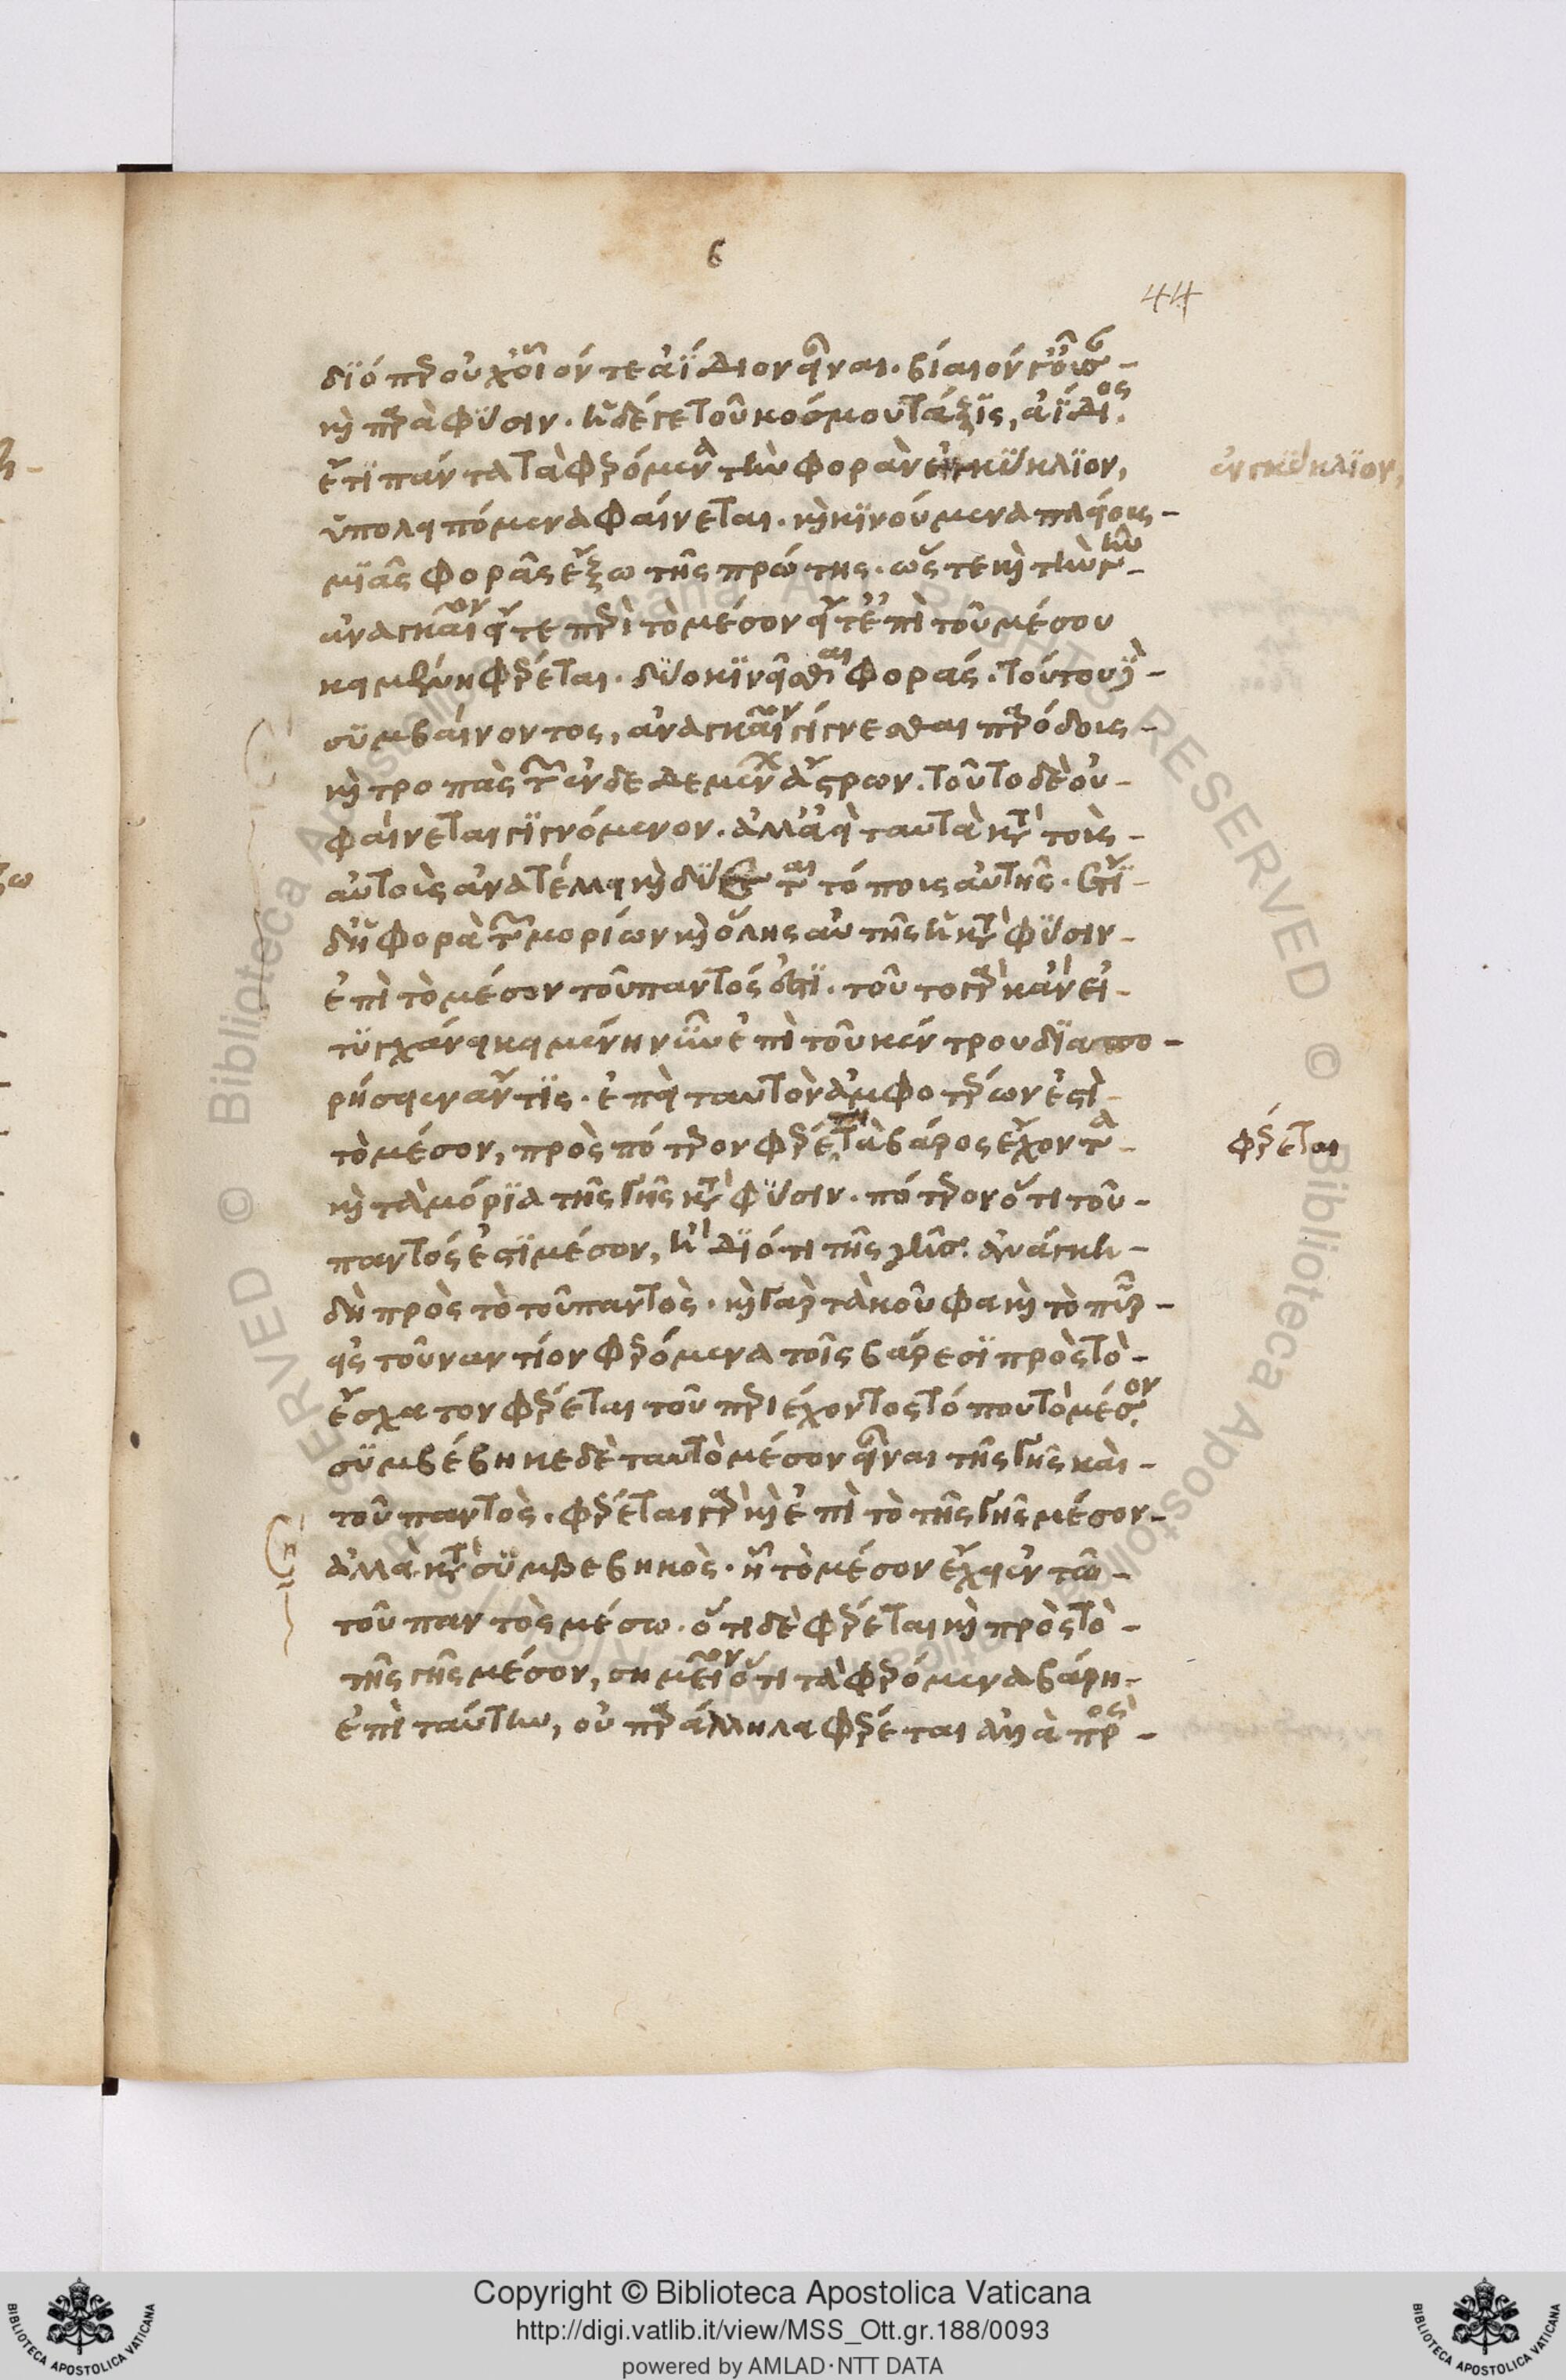 6
44
διόπερ οὐχ οἷόν τε ἀΐδιον εἶναι. βίαιόν γ' οὖσαν
καὶ παρὰ φύσιν. ἡ δέ γε τοῦ κόσμου τάξις, ἀΐδιος.
ἔτι πάντα τὰ φερόμενα τὴν φορὰν ἐγκύκλιον,
ἐγκύκλιον,
ὑπολειπόμενα φαίνεται. καὶ κινούμενα πλείους
μιᾶς φορᾶς ἔξω τῆς πρώτης. ὥστε καὶ τὴν γῆν
ἀναγκαῖον εἴτε περὶ τὸ μέσον εἴτ' ἐπὶ τοῦ μέσου
κειμένη φέρεται. δύο κινεῖσθαι φοράς. τούτου δὲ
συμβαίνοντος, ἀναγκαῖον γίγνεσθαι παρόδοις
καὶ τροπὰς τῶν ἐνδεδεμένων ἄστρων. τοῦτο δὲ οὐ
φαίνεται γιγνόμενον. ἀλλ' ἀεὶ ταυτὰ κατὰ τοὺς
αὐτοὺς ἀνατέλλει καὶ δύεται τόποις αὐτῆς. ἔτι
δ' ἡ φορὰ τῶν μορίων καὶ ὅλης αὐτῆς ἡ κατὰ φύσιν
ἐπὶ τὸ μέσον τοῦ παντός ἐστι. τοῦτο γὰρ κἂν εἰ
τυγχάνει κειμένη νῦν ἐπὶ τοῦ κέντρου διαπο
ρήσειεν ἄν τις. ἐπεὶ ταυτὸν ἀμφοτέρων ἐστὶ
τὸ μέσον, πρὸς πότερον φέρεται τὰ βάρος ἔχοντα
φέρεται
καὶ τὰ μόρια τῆς γῆς κατὰ φύσιν. πότερον ὅτι τοῦ
παντός ἐστι μέσον, ἢ διότι τῆς γῆς. ἀνάγκη
δὴ πρὸς τὸ τοῦ παντός. καὶ γὰρ τὰ κοῦφα καὶ τὸ πῦρ
εἰς τοὐναντίον φερόμενα τοῖς βάρεσι πρὸς τὸ
ἔσχατον φέρεται τοῦ περιέχοντος τόπου τὸ μέσον.
συμβέβηκε δὲ ταυτὸ μέσον εἶναι τῆς γῆς καὶ
τοῦ παντός. φέρεται γὰρ καὶ ἐπὶ τὸ τῆς γῆς μέσον
ἀλλὰ κατὰ συμβεβηκός. ᾗ τὸ μέσον ἔχει ἐν τῶ
τοῦ παντὸς μέσω. ὅτι δὲ φέρεται καὶ πρὸς τὸ
τῆς γῆς μέσον, σημεῖον ὅτι τὰ φερόμενα βάρη
ἐπὶ ταύτην, οὐ παράλληλα φέρεται ἀλλὰ πρὸς
Copyright © Biblioteca Apostolica Vaticana
http://digi.vatlib.it/view/MSS_Ott.gr.188/0093
powered by AMLAD·NTT DATA